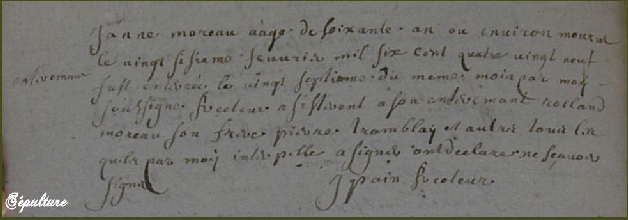 Janne moreau aagé de soixante an ou environ mourut
le vingt sisieme feuvrier mil six cent quatre vingt neuf
antiremant
fust enterrée le vingt septieme du meme mois par moy
soussigne Recteur asistoient a son anteremant rolland
moreau son frere pierre tramblay et autres tous les
quels par moy interpelle a signer ont declare ne scavoir
signer
Jpain Recteur
Sépulture